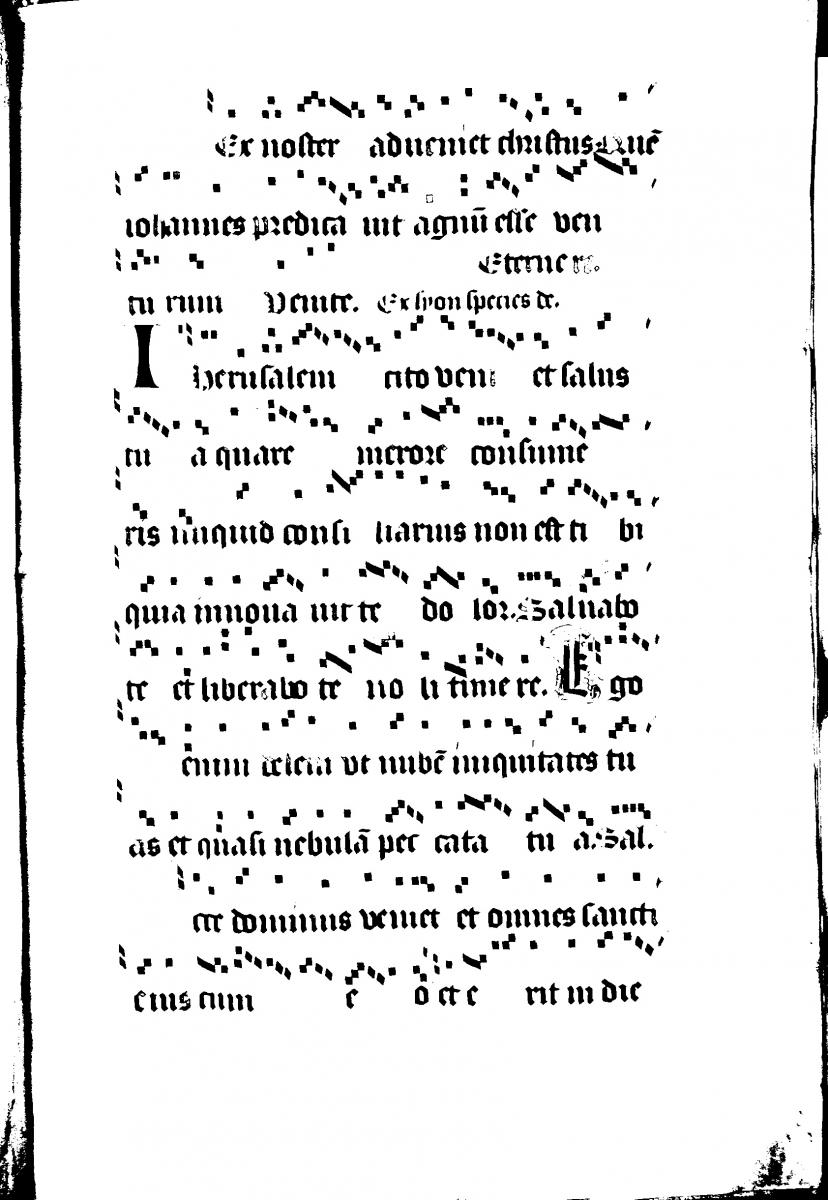 Ex noster adueniet christus Quē
iohannes predica uit agnū esse ven
Eterne re.
tu rum Venite. Ex syon species de.
Iherusalem cito veni et salus
tu a quare merore consume
ris nunquid consi liarius non est ti bi
quia innoua uit te do lor. Saluabo
te et liberabo te no li time re. Ego
enim delebi vt nubē iniquitates tu
as et quasi nebulā pec cata tu a. Sal.
cce dominus veniet et omnes sancti
eius cum e o et e rit in die